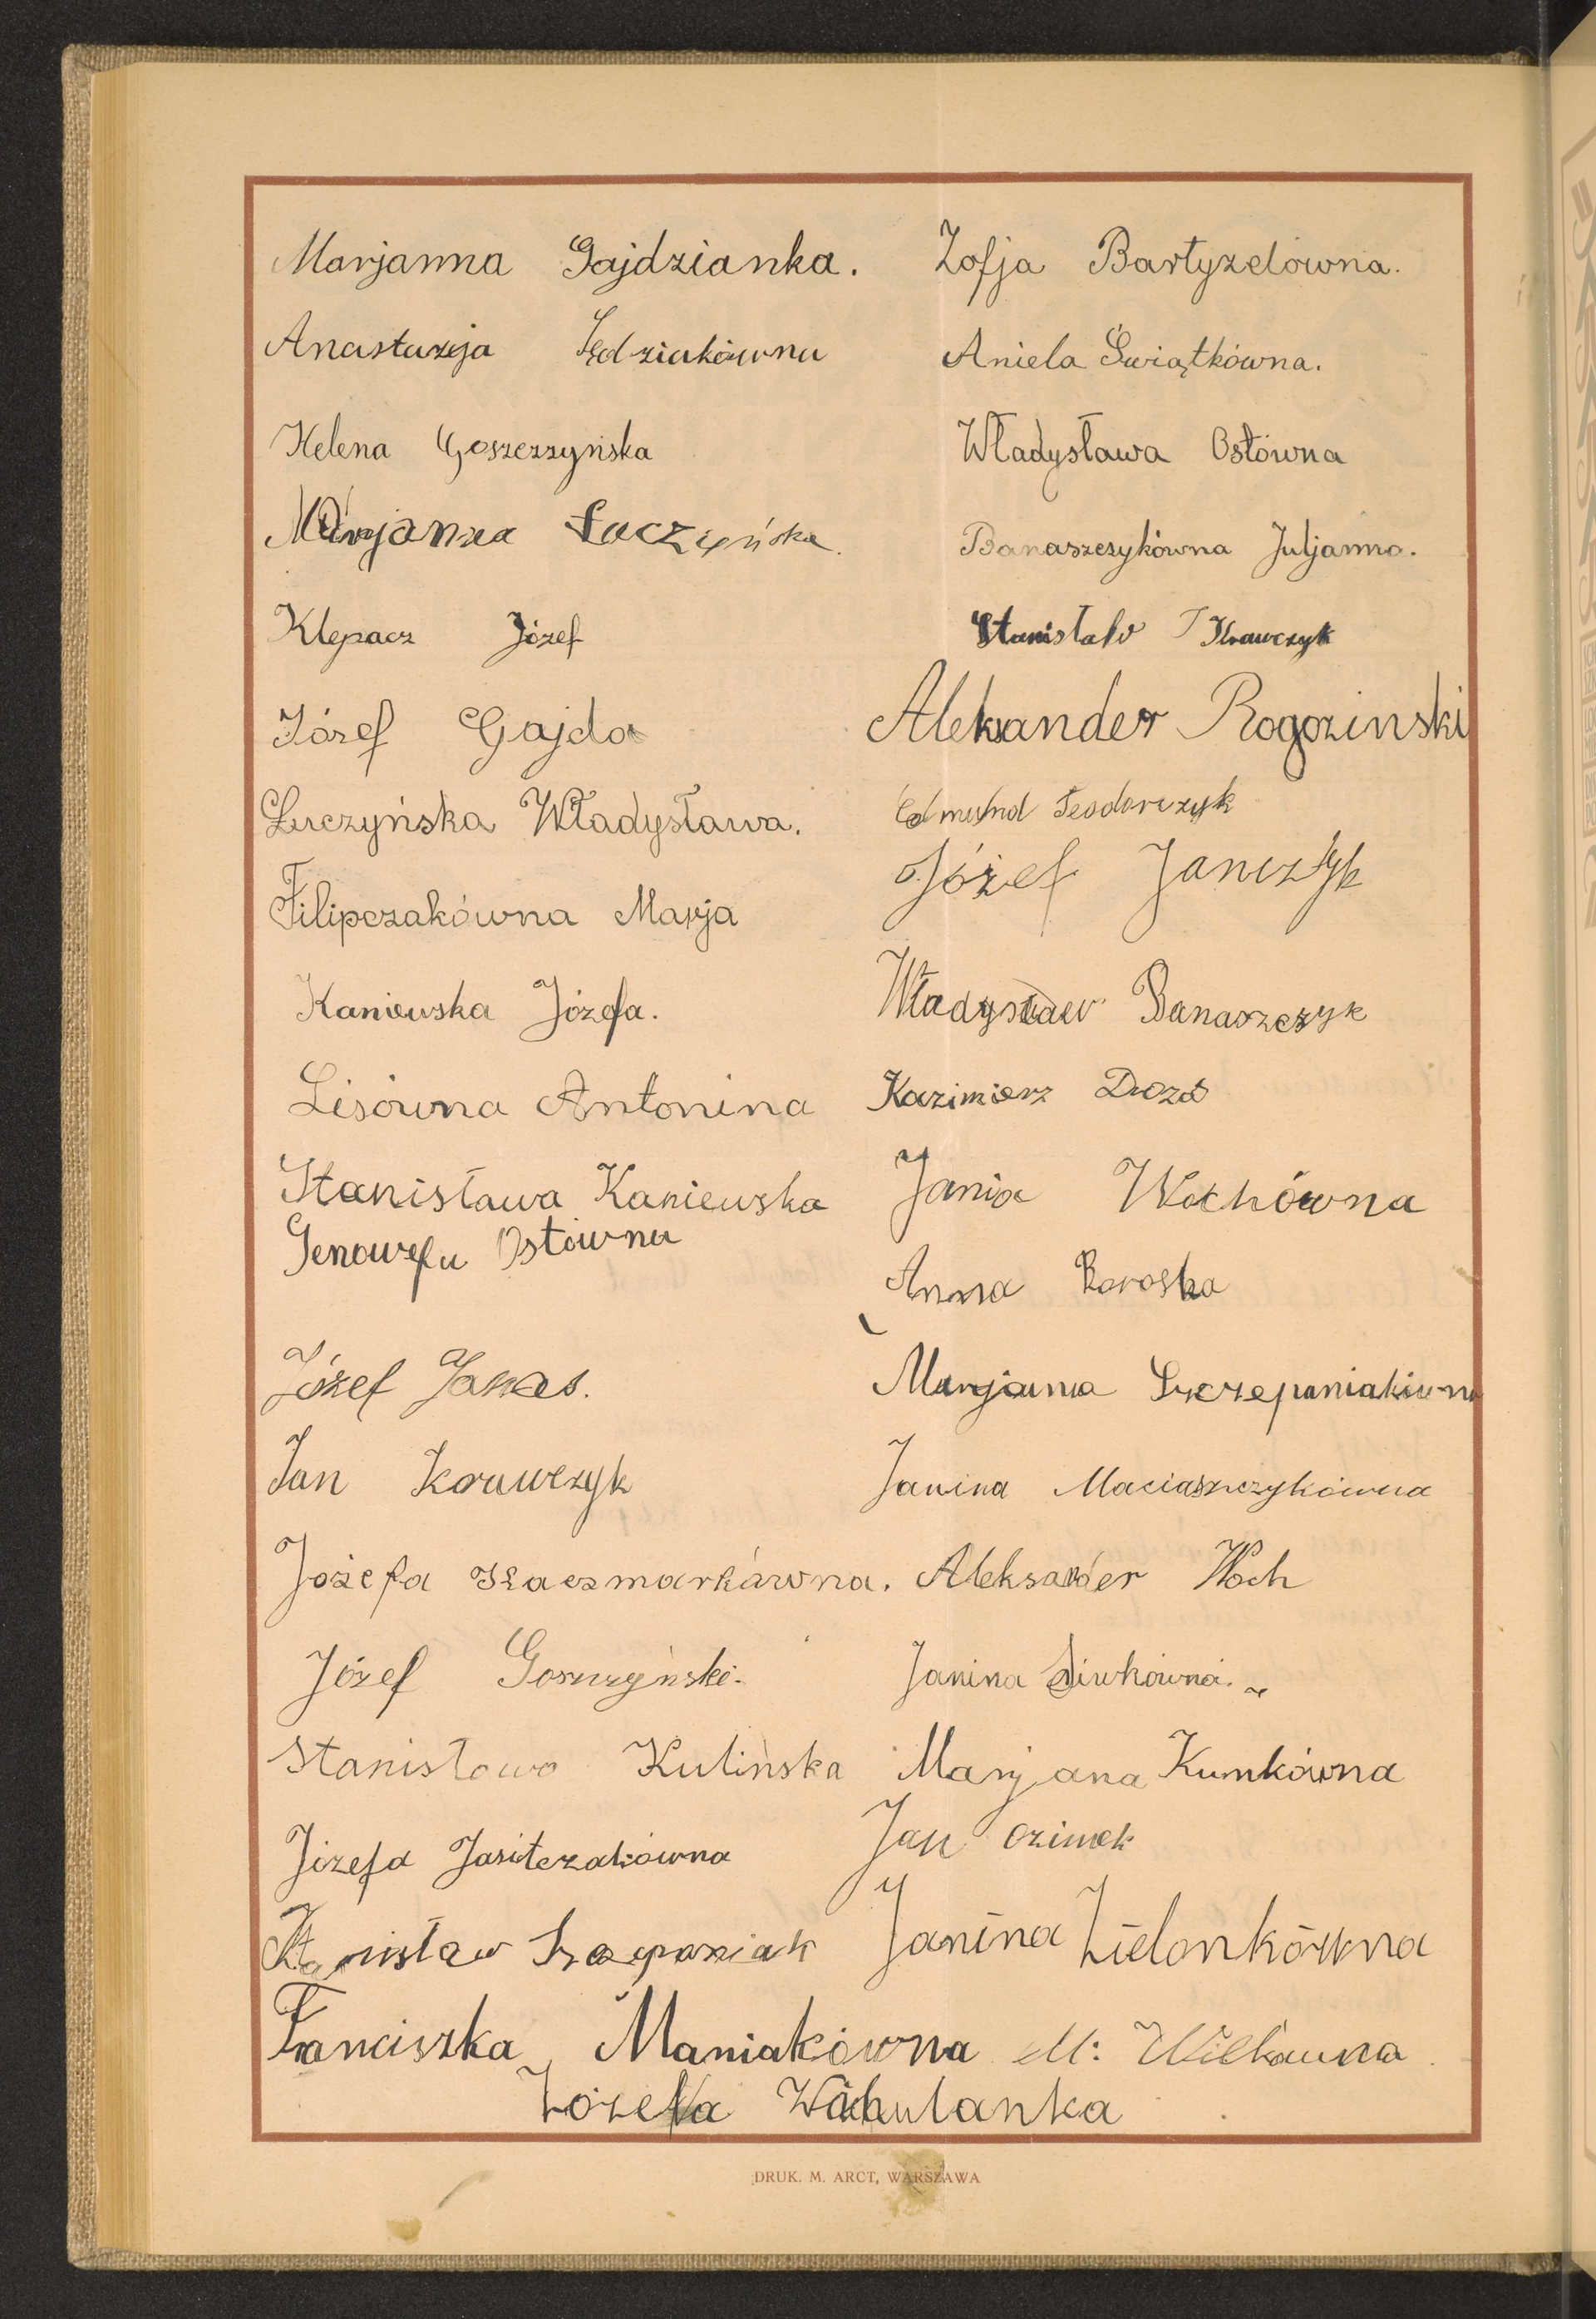 Marjanna Gajdzianka. Zofja Bartyzelówna.
Anastazja Sędziakówna Aniela Świątkówna.
Helena Goszczzyńska Władysława Osłówna
Marjanna Łuczyńska. Banaszczykówna Juljanna.
Klepacz Józef Stanisław Krawczyk
Józef Gajda Aleksander Rogozinski
Łuczyńska Władysława. Edmund Teodorczyk
Józef Janczyk
Filipczakówna Marja
Kaniewska Józefa. Władysław Banaszczyk
Lisówna Antonina Kazimierz Drozd
Stanisława Kaniewska Jania Wochówna
Genowefa Ostówna
Anna
Józef Janas. Marjanna Szczepaniakówna
Jan Krawczyk Janina Maciaszczykówna
Józefa Kaczmarkówna. Aleksander Woch
Józef Goszczyński. Janina Siwkówna.
Stanisława Kulińska Marjana Kumkówna
Józefa Jasitczakówna Jan Ozimek
Stanisław Szczepaniak Janina Zielonkówna
Franciszka Maniakówna M: Wilkówna
Józefa Wachulanka
DRUK. M. ARCT, WARSZAWA